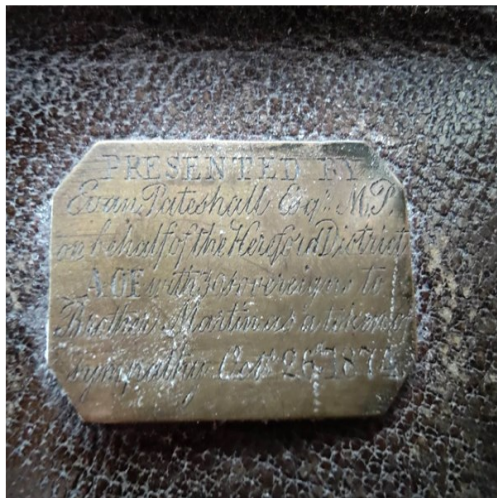 PRESENTED BY
Evan Pateshall Esqr. M.P.
on behalf of the Hereford District
AOF with 30 sovereigns to
Brother Martin as a token of
sympathy Octr. 26th 1874